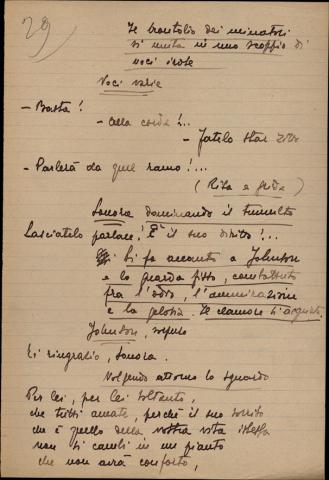 29
Il brontolio dei minatori
si muta in uno scoppio di
voci irose
Voci varie
- Basta!
- Alla corda!...
- Fatelo star zitto
- Parlerà da quel ramo!...
(Risa e grida)
Sonora dominando il tumulto
Lasciatelo parlare! È il suo diritto!...
Si fa accanto a Johnson
e lo guarda fisso, combattuto
fra l'odio, l'ammirazione
e la gelosia. Il clamore s'acquieta.
Johnson,
Ti ringrazio, Sonora.
Volgendo attorno lo sguardo
Per lei, per lei soltanto,
che tutti amate, perchè il suo sorriso
che è quello della vostra vita istessa
non si cambi in un pianto
che non avrà conforto,